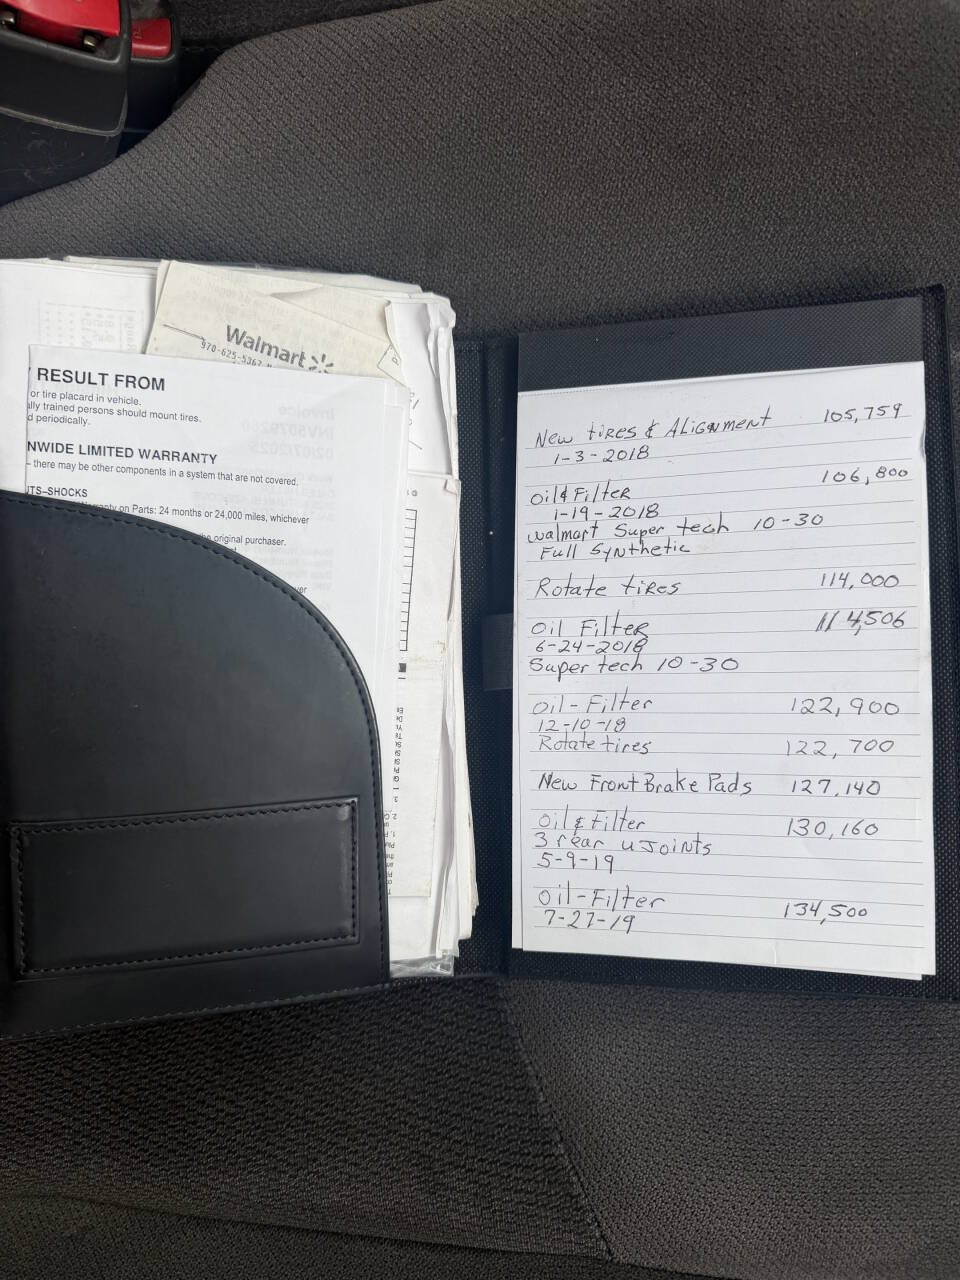 Walmart
970-625-5367
RESULT FROM
or tire placard in vehicle.
ally trained persons should mount tires.
d periodically.
NWIDE LIMITED WARRANTY
there may be other components in a system that are not covered.
UTS–SHOCKS
Warranty on Parts: 24 months or 24,000 miles, whichever
the original purchaser.
New tires & Alignment 105,759
1-3-2018
Oil & Filter 106,800
1-19-2018
Walmart Super tech 10-30
Full Synthetic
Rotate tires 114,000
Oil Filter 114,506
6-24-2018
Super tech 10-30
Oil-Filter 122,900
12-10-18
Rotate tires 122,700
New Front Brake Pads 127,140
Oil & Filter 130,160
3 rear u Joints
5-9-19
Oil-Filter 134,500
7-27-19